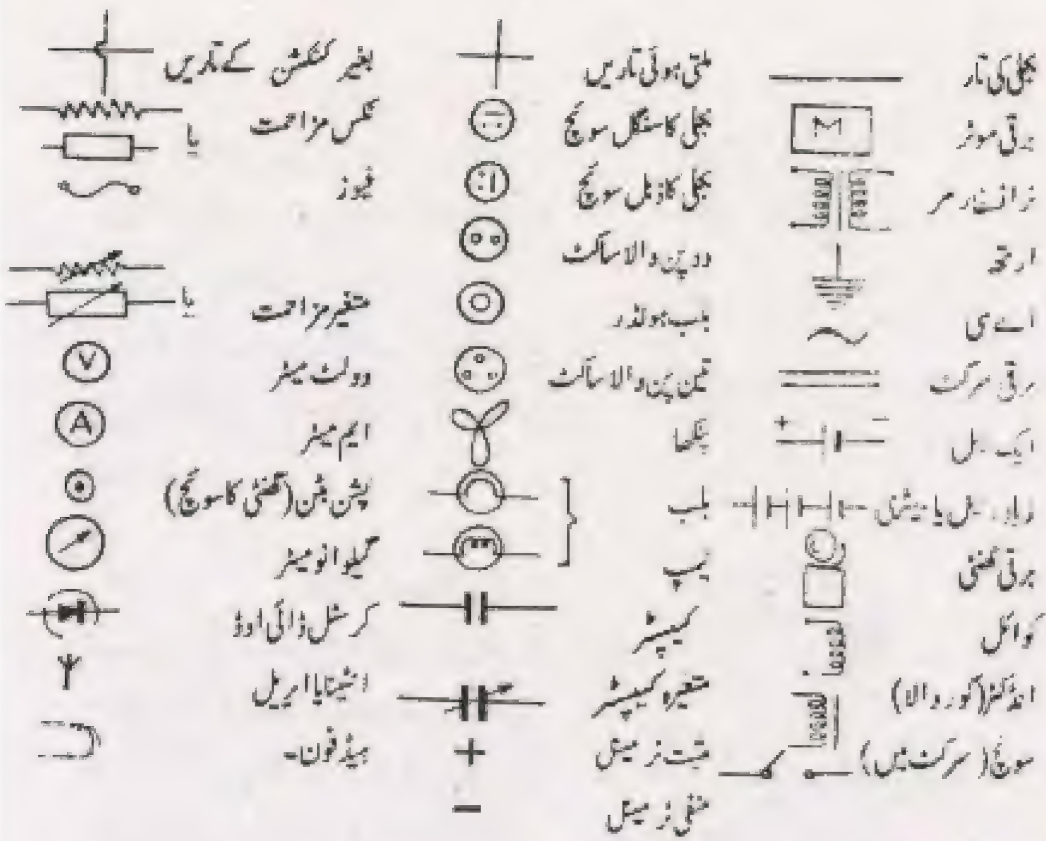 بجلی کی تار
برقی موٹر
M
ٹرانسفارمر
ارتھ
اے سی
برقی سرکٹ
ایک سیل
+ −
زیادہ سیل یا بیٹری
برقی گھنٹی
کوائل
انڈکٹر (کور والا)
سوئچ (سرکٹ میں)
ملتی ہوئی تاریں
بجلی کا سنگل سوئچ
بجلی کا ڈبل سوئچ
دو پن والا ساکٹ
بلب ہولڈر
تین پن والا ساکٹ
پنکھا
بلب
لیمپ
کپیسٹر
متغیرہ کپیسٹر
مثبت ٹرمینل
+
منفی ٹرمینل
−
بغیر کنکشن کے تاریں
فکس مزاحمت
یا
فیوز
متغیر مزاحمت
یا
وولٹ میٹر
V
ایم میٹر
A
پش بٹن (گھنٹی کا سوئچ)
گیلوانومیٹر
کرسٹل ڈائی اوڈ
انٹینا یا ایریل
ہیڈ فون۔